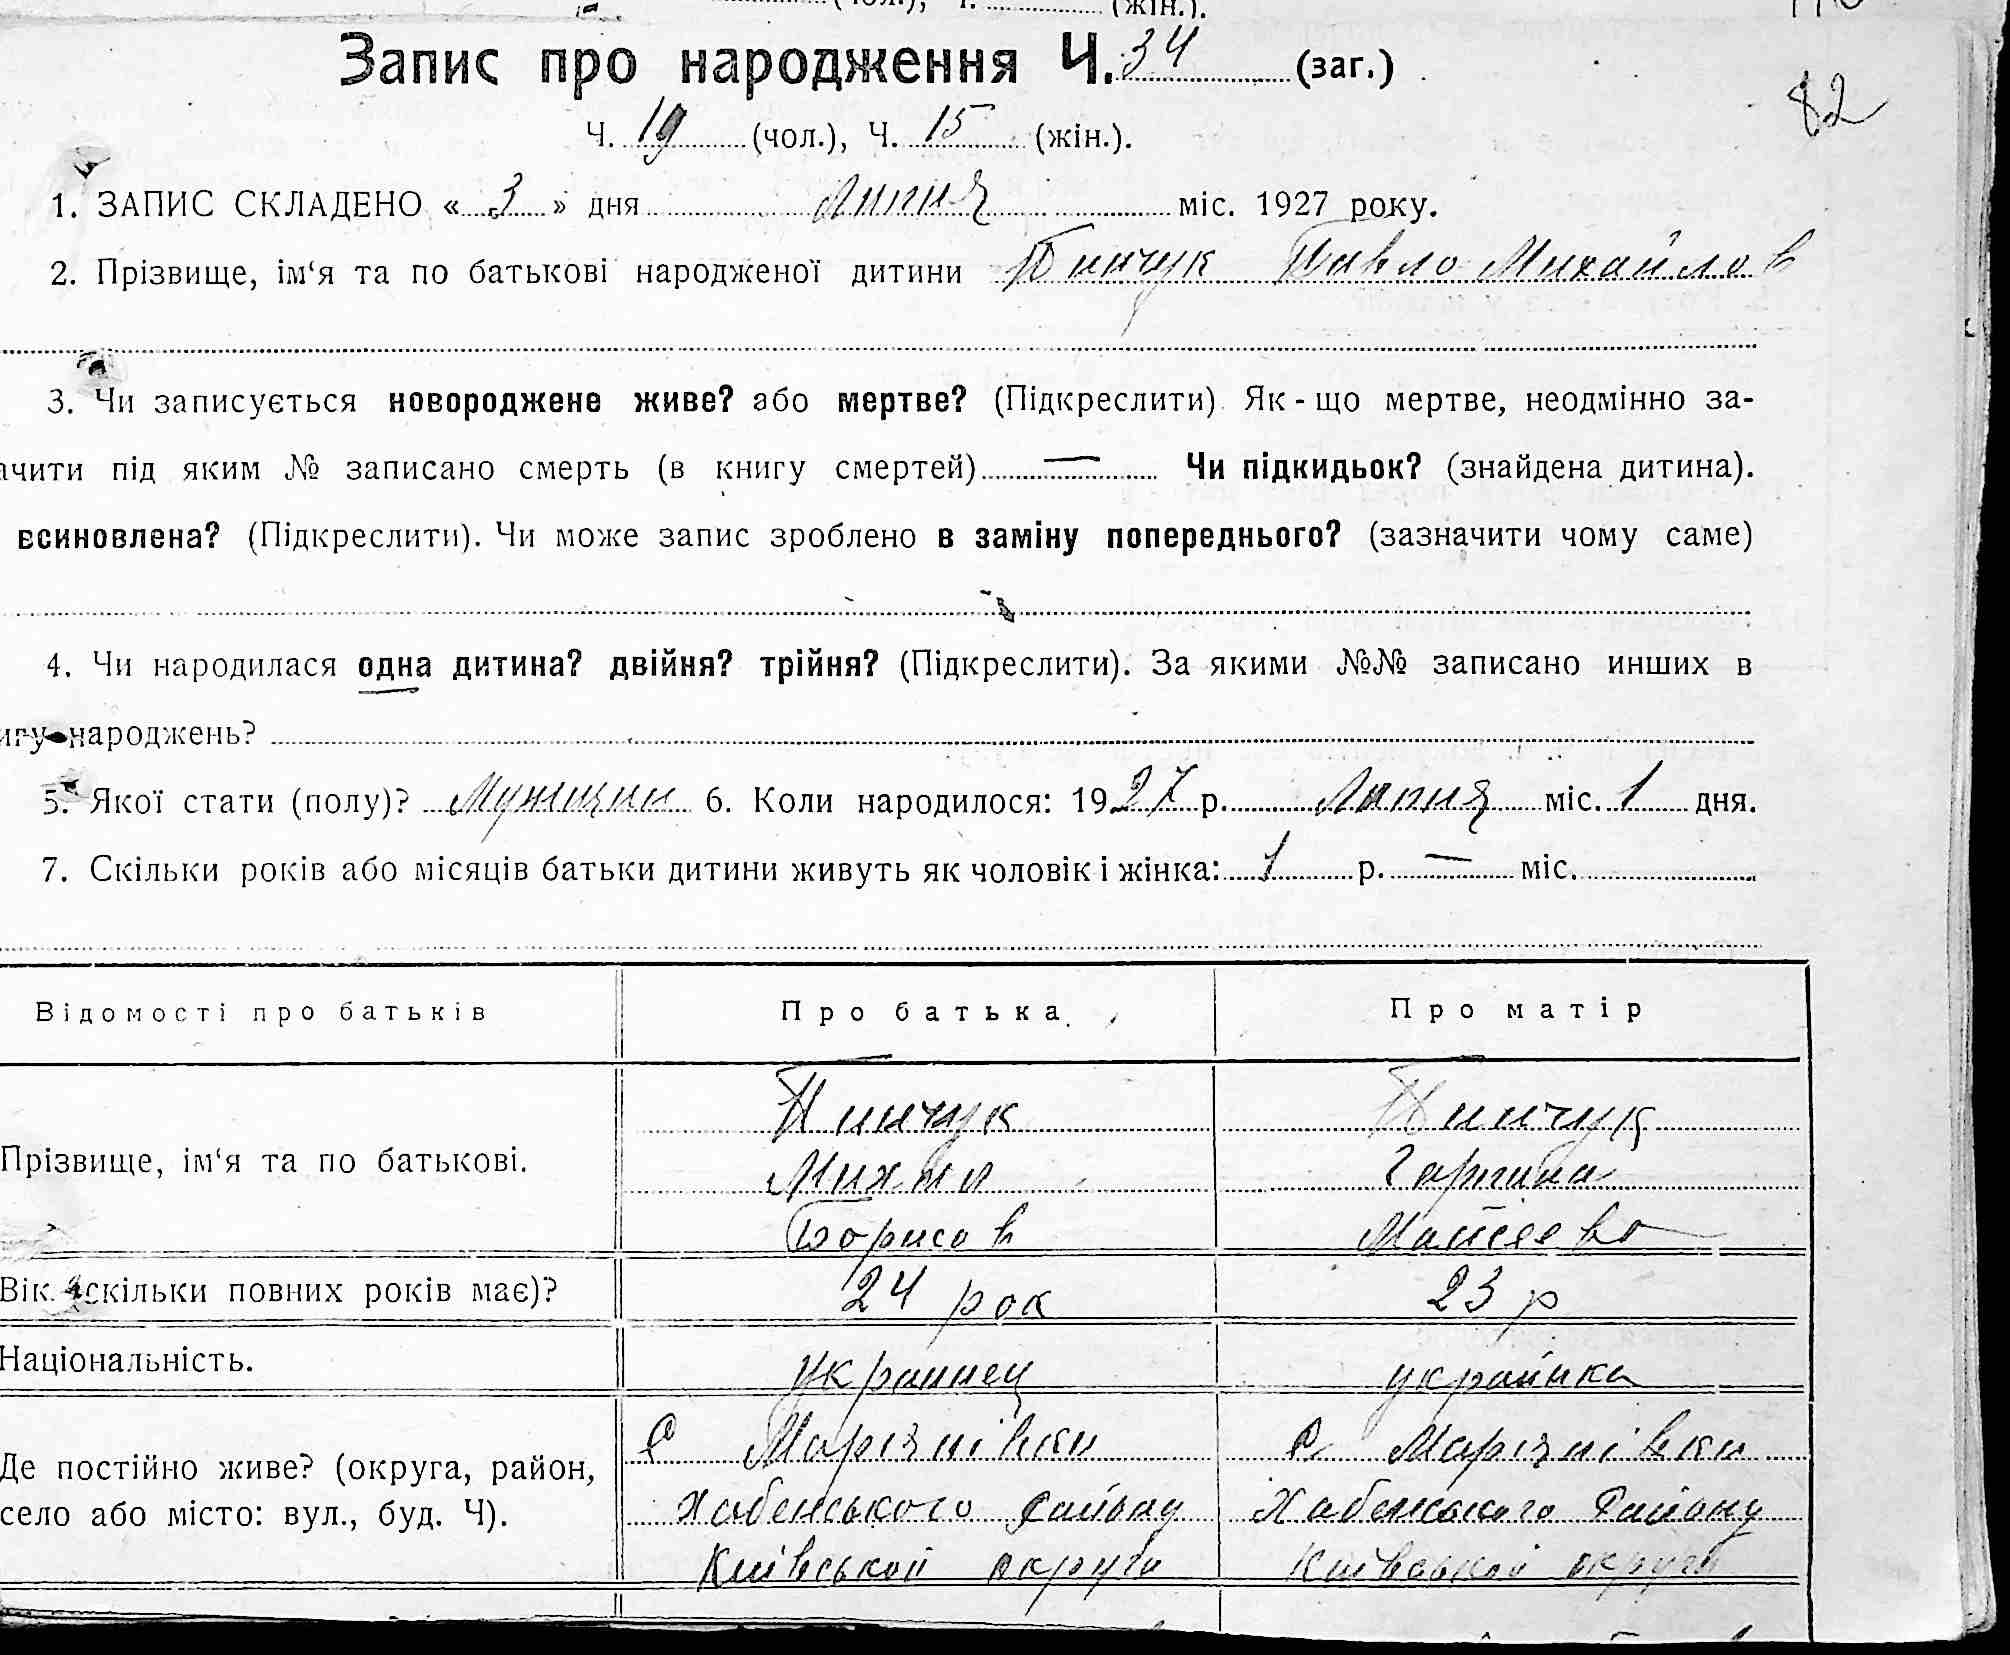 (чол.), Ч. (жін.).
Запис про народження Ч. 34 (заг.)
82
Ч. 19 (чол.), Ч. 15 (жін.).
1. ЗАПИС СКЛАДЕНО « 3 » дня Липня міс. 1927 року.
2. Прізвище, ім‘я та по батькові народженої дитини Пинчук Павло Михайлов
3. Чи записується новороджене живе? або мертве? (Підкреслити) Як-що мертве, неодмінно за-
ачити під яким № записано смерть (в книгу смертей) — Чи підкидьок? (знайдена дитина).
всиновлена? (Підкреслити). Чи може запис зроблено в заміну попереднього? (зазначити чому саме)
4. Чи народилася одна дитина? двійня? трійня? (Підкреслити). За якими №№ записано инших в
игу народжень?
5. Якої стати (полу)? 6. Коли народилося: 1927 р. Липня міс. 1 дня.
7. Скільки років або місяців батьки дитини живуть як чоловік і жінка: 1 р. — міс.
Відомості про батьків Про батька Про матір
Пинчук Пинчук
Прізвище, ім‘я та по батькові. Михайло Гарпина
Борисов Мойсеева
Вік (скільки повних років має)? 24 рок 23 р
Національність. украинец украінка
Де постійно живе? (округа, район, с Мартинівки с. Мартинівки
село або місто: вул., буд. Ч). Хабенського району Хабенського району
Київськой округи Київськой округи